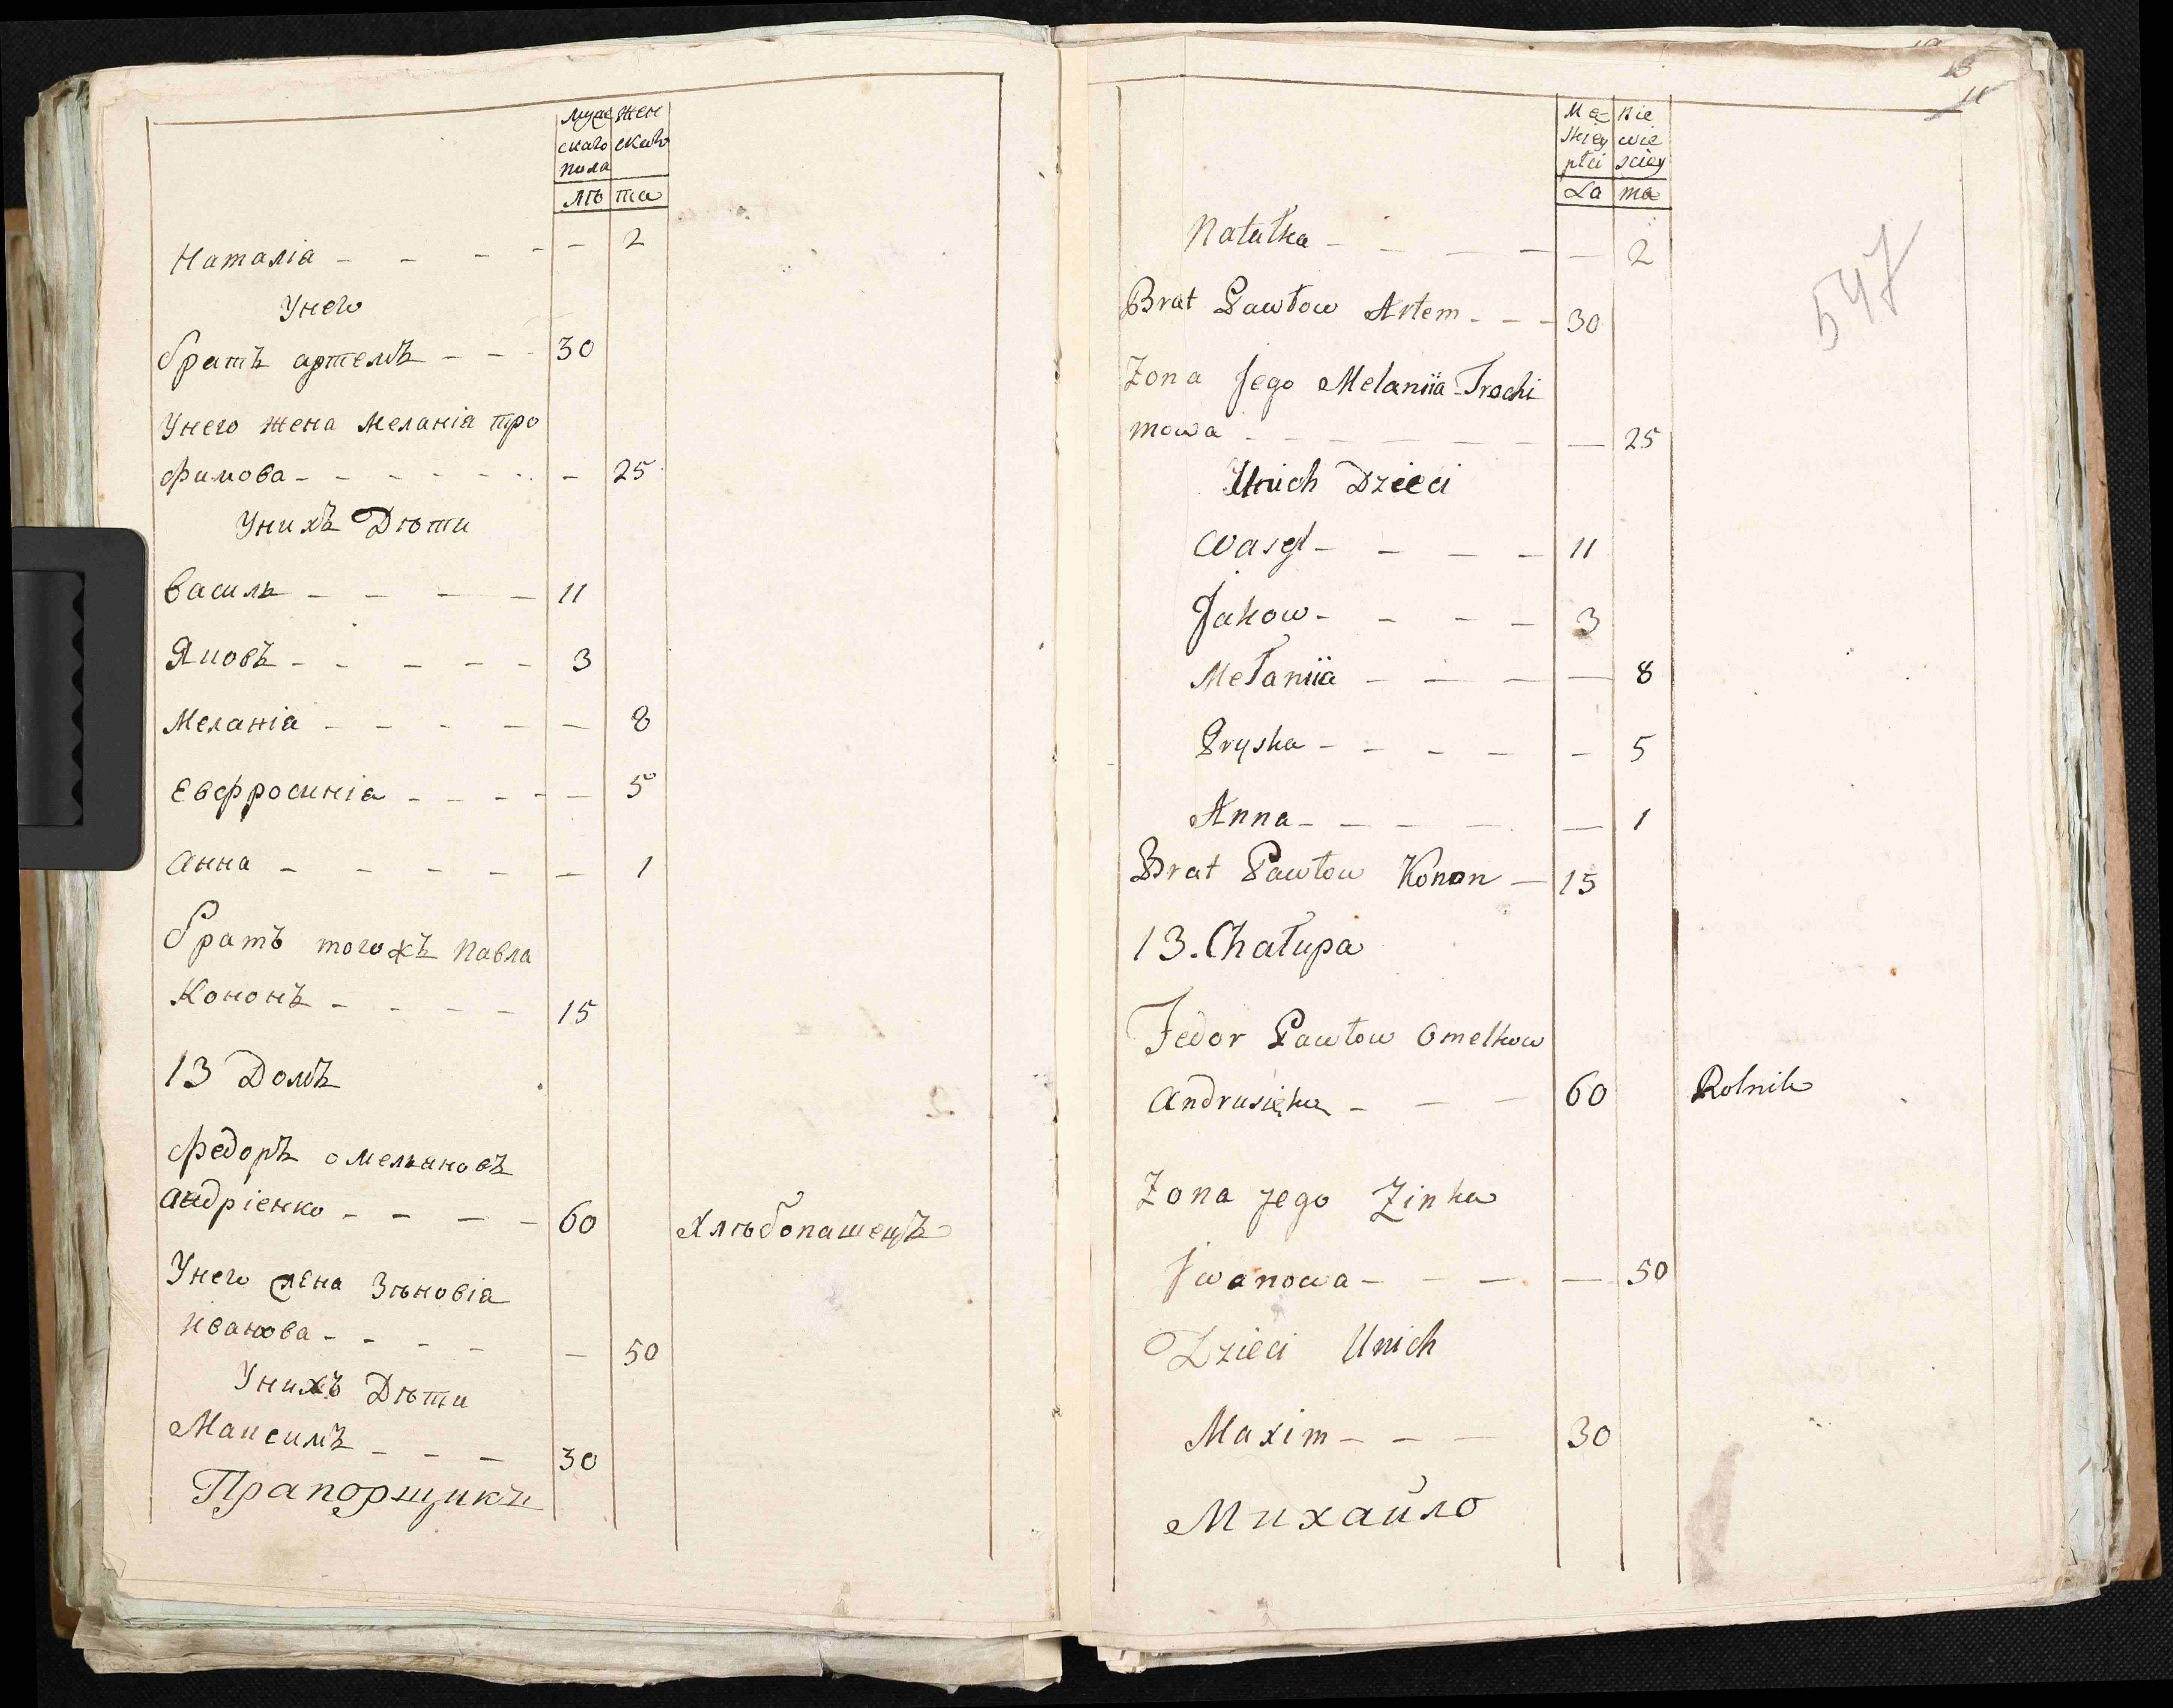 Муже Жен
скаго скаго
пола
Лѣ та
Наталіа - - - - - 2
Унего
братъ артемъ - - - 30
Унего жена Меланіа тро
фимова - - - - - - - 25
Унихъ Дѣти
Василь - - - - 11
Яковъ - - - - - 3
Меланіа - - - - - - 8
Евфросиніа - - - - - 5
Анна - - - - - - 1
братъ тогожъ Павла
Кононъ - - - - 15
13 Домъ
Федоръ омеляновъ
Андріенко - - - - 60 Хлѣбопашецъ
Унего жена Зѣновіа
Иванова - - - - - 50
Унихъ Дѣти
Максимъ - - - 30
Прапорщикъ
13
11
Mę- Nie
skiey wie
płci sciey
La ta
547
Natałka - - - - - 2
Brat Pawłow Artem - - - 30
Zona Jego Melaniia Trochi
mowa - - - - - - - 25
Unich Dzieci
Wasyl - - - - 11
Jakow - - - - 3
Mełaniia - - - - 8
Pryska - - - - - 5
Anna - - - - - 1
Brat Pawłow Konon - 15
13. Chałupa
Fedor Pawłow Omelkow
Andrusięka - - - 60 Rolnik
Zona Jego Zinka
Jwanowa - - - - 50
Dzieci Unich
Maxim - - - 30
Михайло